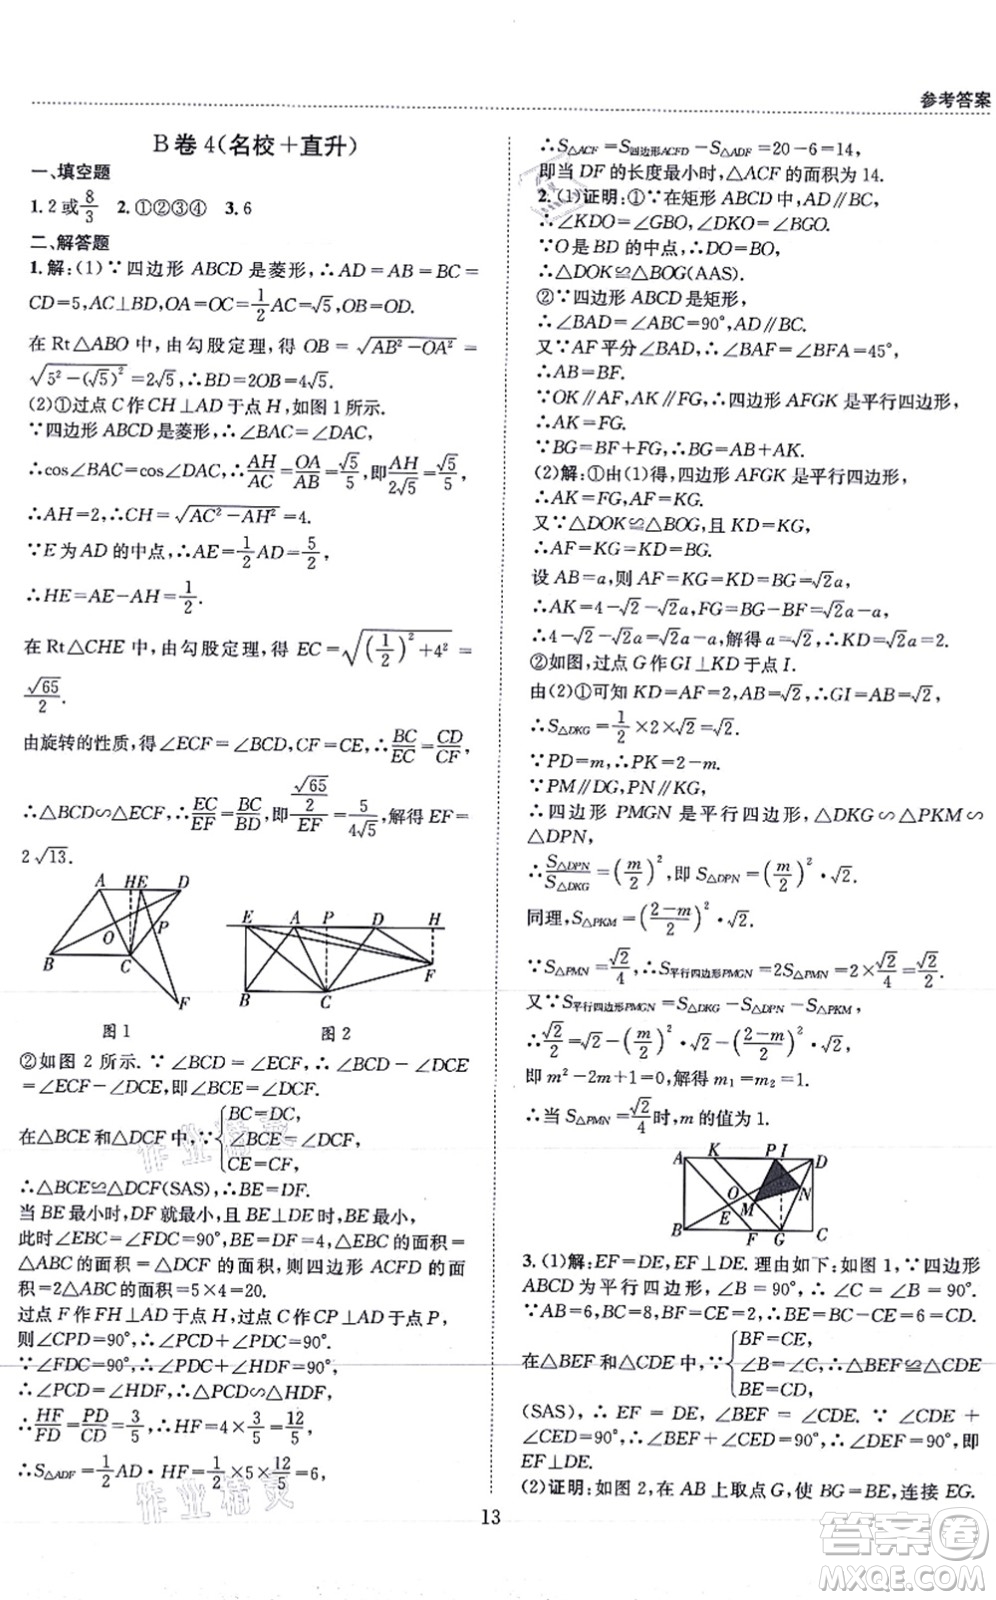 参考答案
B卷4(名校+直升)
一、填空题
1. 2或8/3 2. ①②③④ 3. 6
二、解答题
1. 解:(1)∵四边形 ABCD 是菱形,∴AD=AB=BC=
CD=5,AC⊥BD,OA=OC=1/2AC=√5,OB=OD.
在 Rt△ABO 中,由勾股定理,得 OB=√(AB²-OA²)=
√(5²-(√5)²)=2√5,∴BD=2OB=4√5.
(2)①过点 C 作 CH⊥AD 于点 H,如图 1 所示.
∵四边形 ABCD 是菱形,∴∠BAC=∠DAC,
∴cos∠BAC=cos∠DAC,∴AH/AC=OA/AB=√5/5,即AH/2√5=√5/5,
∴AH=2,∴CH=√(AC²-AH²)=4.
∵E 为 AD 的中点,∴AE=1/2AD=5/2,
∴HE=AE-AH=1/2.
在 Rt△CHE 中,由勾股定理,得 EC=√((1/2)²+4²)=
√65/2.
由旋转的性质,得∠ECF=∠BCD,CF=CE,∴BC/EC=CD/CF,
∴△BCD∽△ECF,∴EC/EF=BC/BD,即(√65/2)/EF=5/4√5,解得 EF=
2√13.
A H E D P O B C F
E A P D H F B C
图 1 图 2
②如图 2 所示. ∵∠BCD=∠ECF,∴∠BCD-∠DCE
=∠ECF-∠DCE,即∠BCE=∠DCF.
在△BCE 和△DCF 中,∵{BC=DC,
∠BCE=∠DCF,
CE=CF,
∴△BCE≌△DCF(SAS),∴BE=DF.
当 BE 最小时,DF 就最小,且 BE⊥DE 时,BE 最小,
此时∠EBC=∠FDC=90°,△EBC 的面积=
△ABC 的面积=△DCF 的面积,则四边形 ACFD 的面
积=2△ABC 的面积=5×4=20.
过点 F 作 FH⊥AD 于点 H,过点 C 作 CP⊥AD 于点 P,
则∠CPD=90°,∴∠PCD+∠PDC=90°.
∵∠FDC=90°,∴∠PDC+∠HDF=90°,
∴∠PCD=∠HDF,∴△PCD∽△HDF,
∴HF/FD=PD/CD=3/5,∴HF=4×3/5=12/5,
∴S△ADF=1/2AD·HF=1/2×5×12/5=6,
∴S△ACF=S四边形ACFD-S△ADF=20-6=14,
即当 DF 的长度最小时,△ACF 的面积为 14.
2. (1)证明:①∵在矩形 ABCD 中,AD∥BC,
∴∠KDO=∠GBO,∠DKO=∠BGO.
∵O 是 BD 的中点,∴DO=BO,
∴△DOK≌△BOG(AAS).
②∵四边形 ABCD 是矩形,
∴∠BAD=∠ABC=90°,AD∥BC.
又∵AF 平分∠BAD,∴∠BAF=∠BFA=45°,
∴AB=BF.
∵OK∥AF,AK∥FG,∴四边形 AFGK 是平行四边形,
∴AK=FG.
∵BG=BF+FG,∴BG=AB+AK.
(2)解:①由(1)得,四边形 AFGK 是平行四边形,
∴AK=FG,AF=KG.
又∵△DOK≌△BOG,且 KD=KG,
∴AF=KG=KD=BG.
设 AB=a,则 AF=KG=KD=BG=√2a,
∴AK=4-√2-√2a,FG=BG-BF=√2a-a,
∴4-√2-√2a=√2a-a,解得 a=√2,∴KD=√2a=2.
②如图,过点 G 作 GI⊥KD 于点 I.
由(2)①可知 KD=AF=2,AB=√2,∴GI=AB=√2,
∴S△DKG=1/2×2×√2=√2.
∵PD=m,∴PK=2-m.
∵PM∥DG,PN∥KG,
∴四边形 PMGN 是平行四边形,△DKG∽△PKM∽
△DPN,
∴S△DPN/S△DKG=(m/2)²,即 S△DPN=(m/2)²·√2.
同理,S△PKM=((2-m)/2)²·√2.
∵S△PMN=√2/4,∴S平行四边形PMGN=2S△PMN=2×√2/4=√2/2.
又∵S平行四边形PMGN=S△DKG-S△DPN-S△PKM,
∴√2/2=√2-(m/2)²·√2-((2-m)/2)²·√2,
即 m²-2m+1=0,解得 m₁=m₂=1.
∴当 S△PMN=√2/4时,m 的值为 1.
A K P I D O N M E B F G C
3. (1)解:EF=DE,EF⊥DE. 理由如下:如图 1,∵四边形
ABCD 为平行四边形,∠B=90°,∴∠B=∠C=90°.
∵AB=6,BC=8,BF=CE=2,∴BE=BC-CE=6=CD.
在△BEF 和△CDE 中,∵{BF=CE,
∠B=∠C,
BE=CD,
∴△BEF≌△CDE
(SAS),∴EF=DE,∠BEF=∠CDE. ∵∠CDE+
∠CED=90°,∴∠BEF+∠CED=90°,∴∠FED=90°,即
EF⊥DE.
(2)证明:如图 2,在 AB 上取点 G,使 BG=BE,连接 EG.
13
作业精灵
作业精灵
答案圈
MXQE.COM